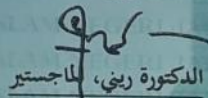 الدكتورة ريني، الماجستير